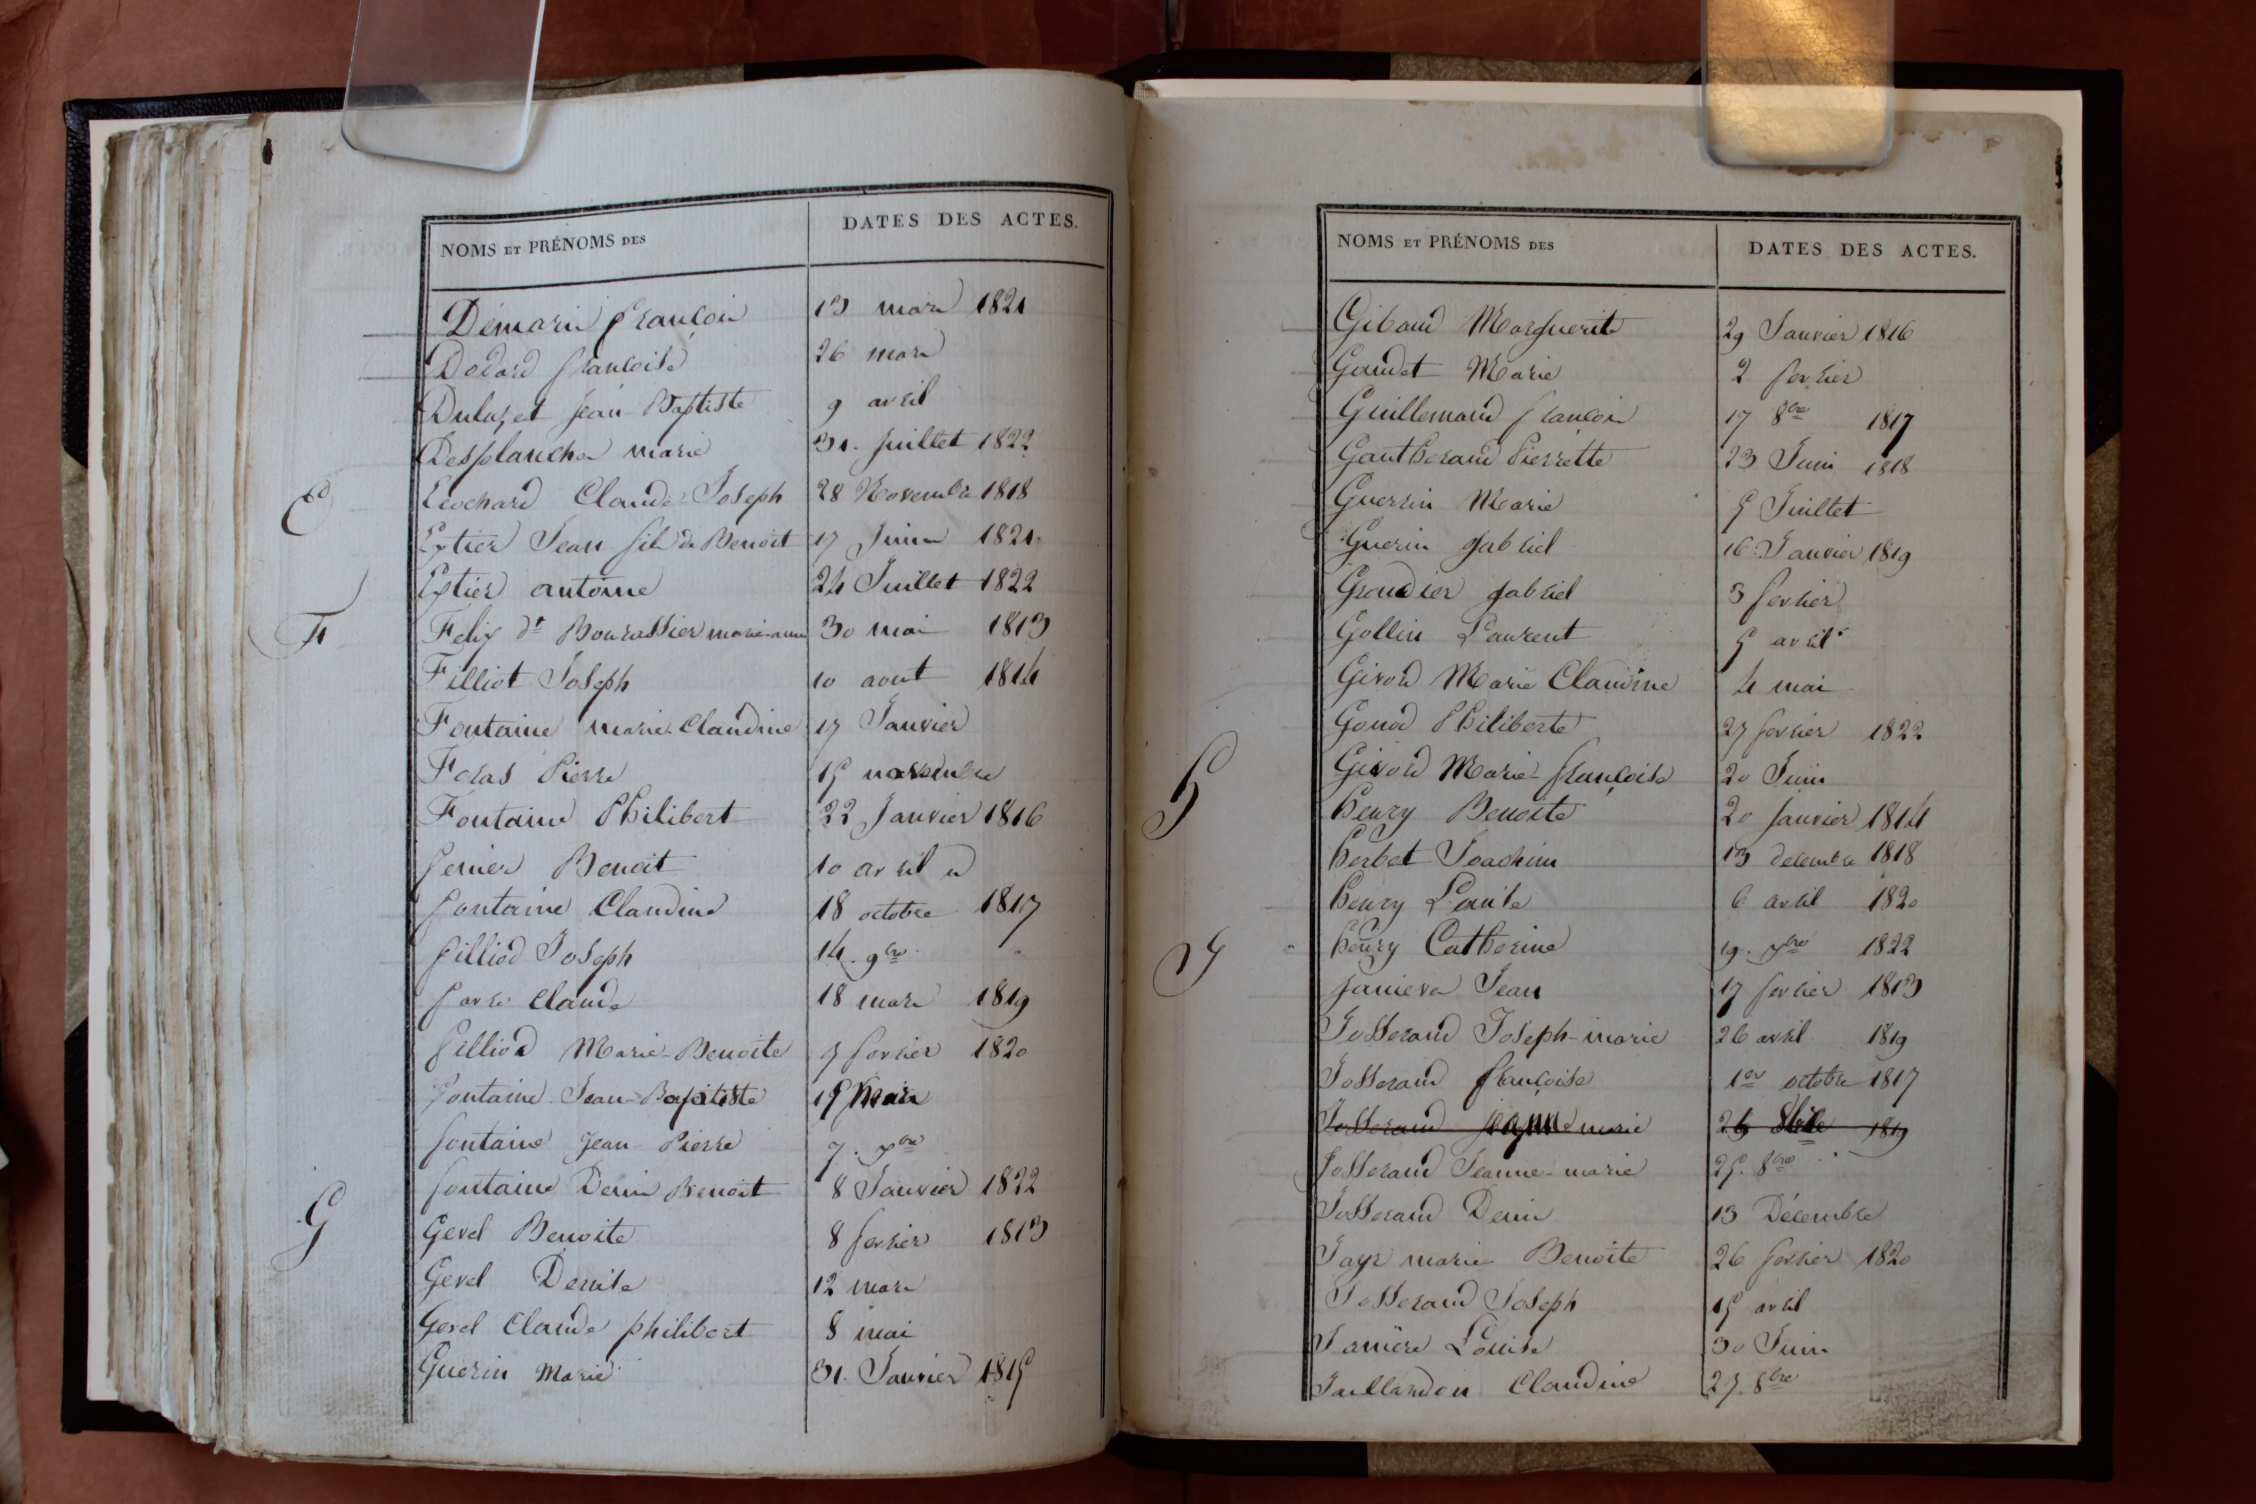 NOMS ET PRÉNOMS DES DATES DES ACTES.
Démaris françois 13 mars 1821
Dodard françoise 26 mars
Dulazet jean Baptiste 9 avril
Desplanches marie 31. juillet 1822
E
Ecochard Claude Joseph 28 Novembre 1818
Extier Jean fils de Benoit 17 Juin 1821
Extier antoine 24 Juillet 1822
F
Felix dt Bourassier marie anne 30 mai 1813
Filliot Joseph 10 aout 1814
Fontaine marie Claudine 17 Janvier
Foras Pierre 15 novembre
Fontaine Philibert 22 Janvier 1816
fenier Benoit 10 avril
fontaine Claudine 18 octobre 1817
filliod Joseph 14. 9bre
favre Claude 18 mars 1819
filliod Marie Benoite 7 fevrier 1820
fontaine Jean Baptiste 15 mars
fontaine Jean Pierre 7. 7bre
fontaine Denis Benoit 8 Janvier 1822
G
Gevel Benoite 8 fevrier 1813
Gevel Denise 12 mars
Gevel Claude philibert 8 mai
Guerin Marie 31. Janvier 1815
NOMS ET PRÉNOMS DES DATES DES ACTES.
Giband Marguerite 29 Janvier 1816
Gaudet Marie 2 fevrier
Guillemaud françois 17 8bre 1817
Gautheraud Pierrette 23 Juin 1818
Guerrin Marie 5 Juillet
Guerin gabriel 16 Janvier 1819
Groudier gabriel 3 fevrier
Gollin Laurent 5 avril
Giroud Marie Claudine 4 mai
Gonod Philiberte 27 fevrier 1822
Givord Marie françoise 20 Juin
H
henry Benoite 20 janvier 1814
herbet Joachim 13 decembre 1818
henry Louise 6 avril 1820
henry Catherine 19. 7bre 1822
J
janiera Jean 17 fevrier 1813
Josserand Joseph-marie 26 avril 1819
Josserand françoise 1er octobre 1817
Josserand jeanne marie 24 8bre 1819
Josserand Jeanne-marie 25. 8bre
Josserand Denis 13 Décembre
Jayr marie Benoite 26 fevrier 1820
Josserand Joseph 15 avril
Janiere Louise 30 Juin
Jaillardon Claudine 27. 8bre